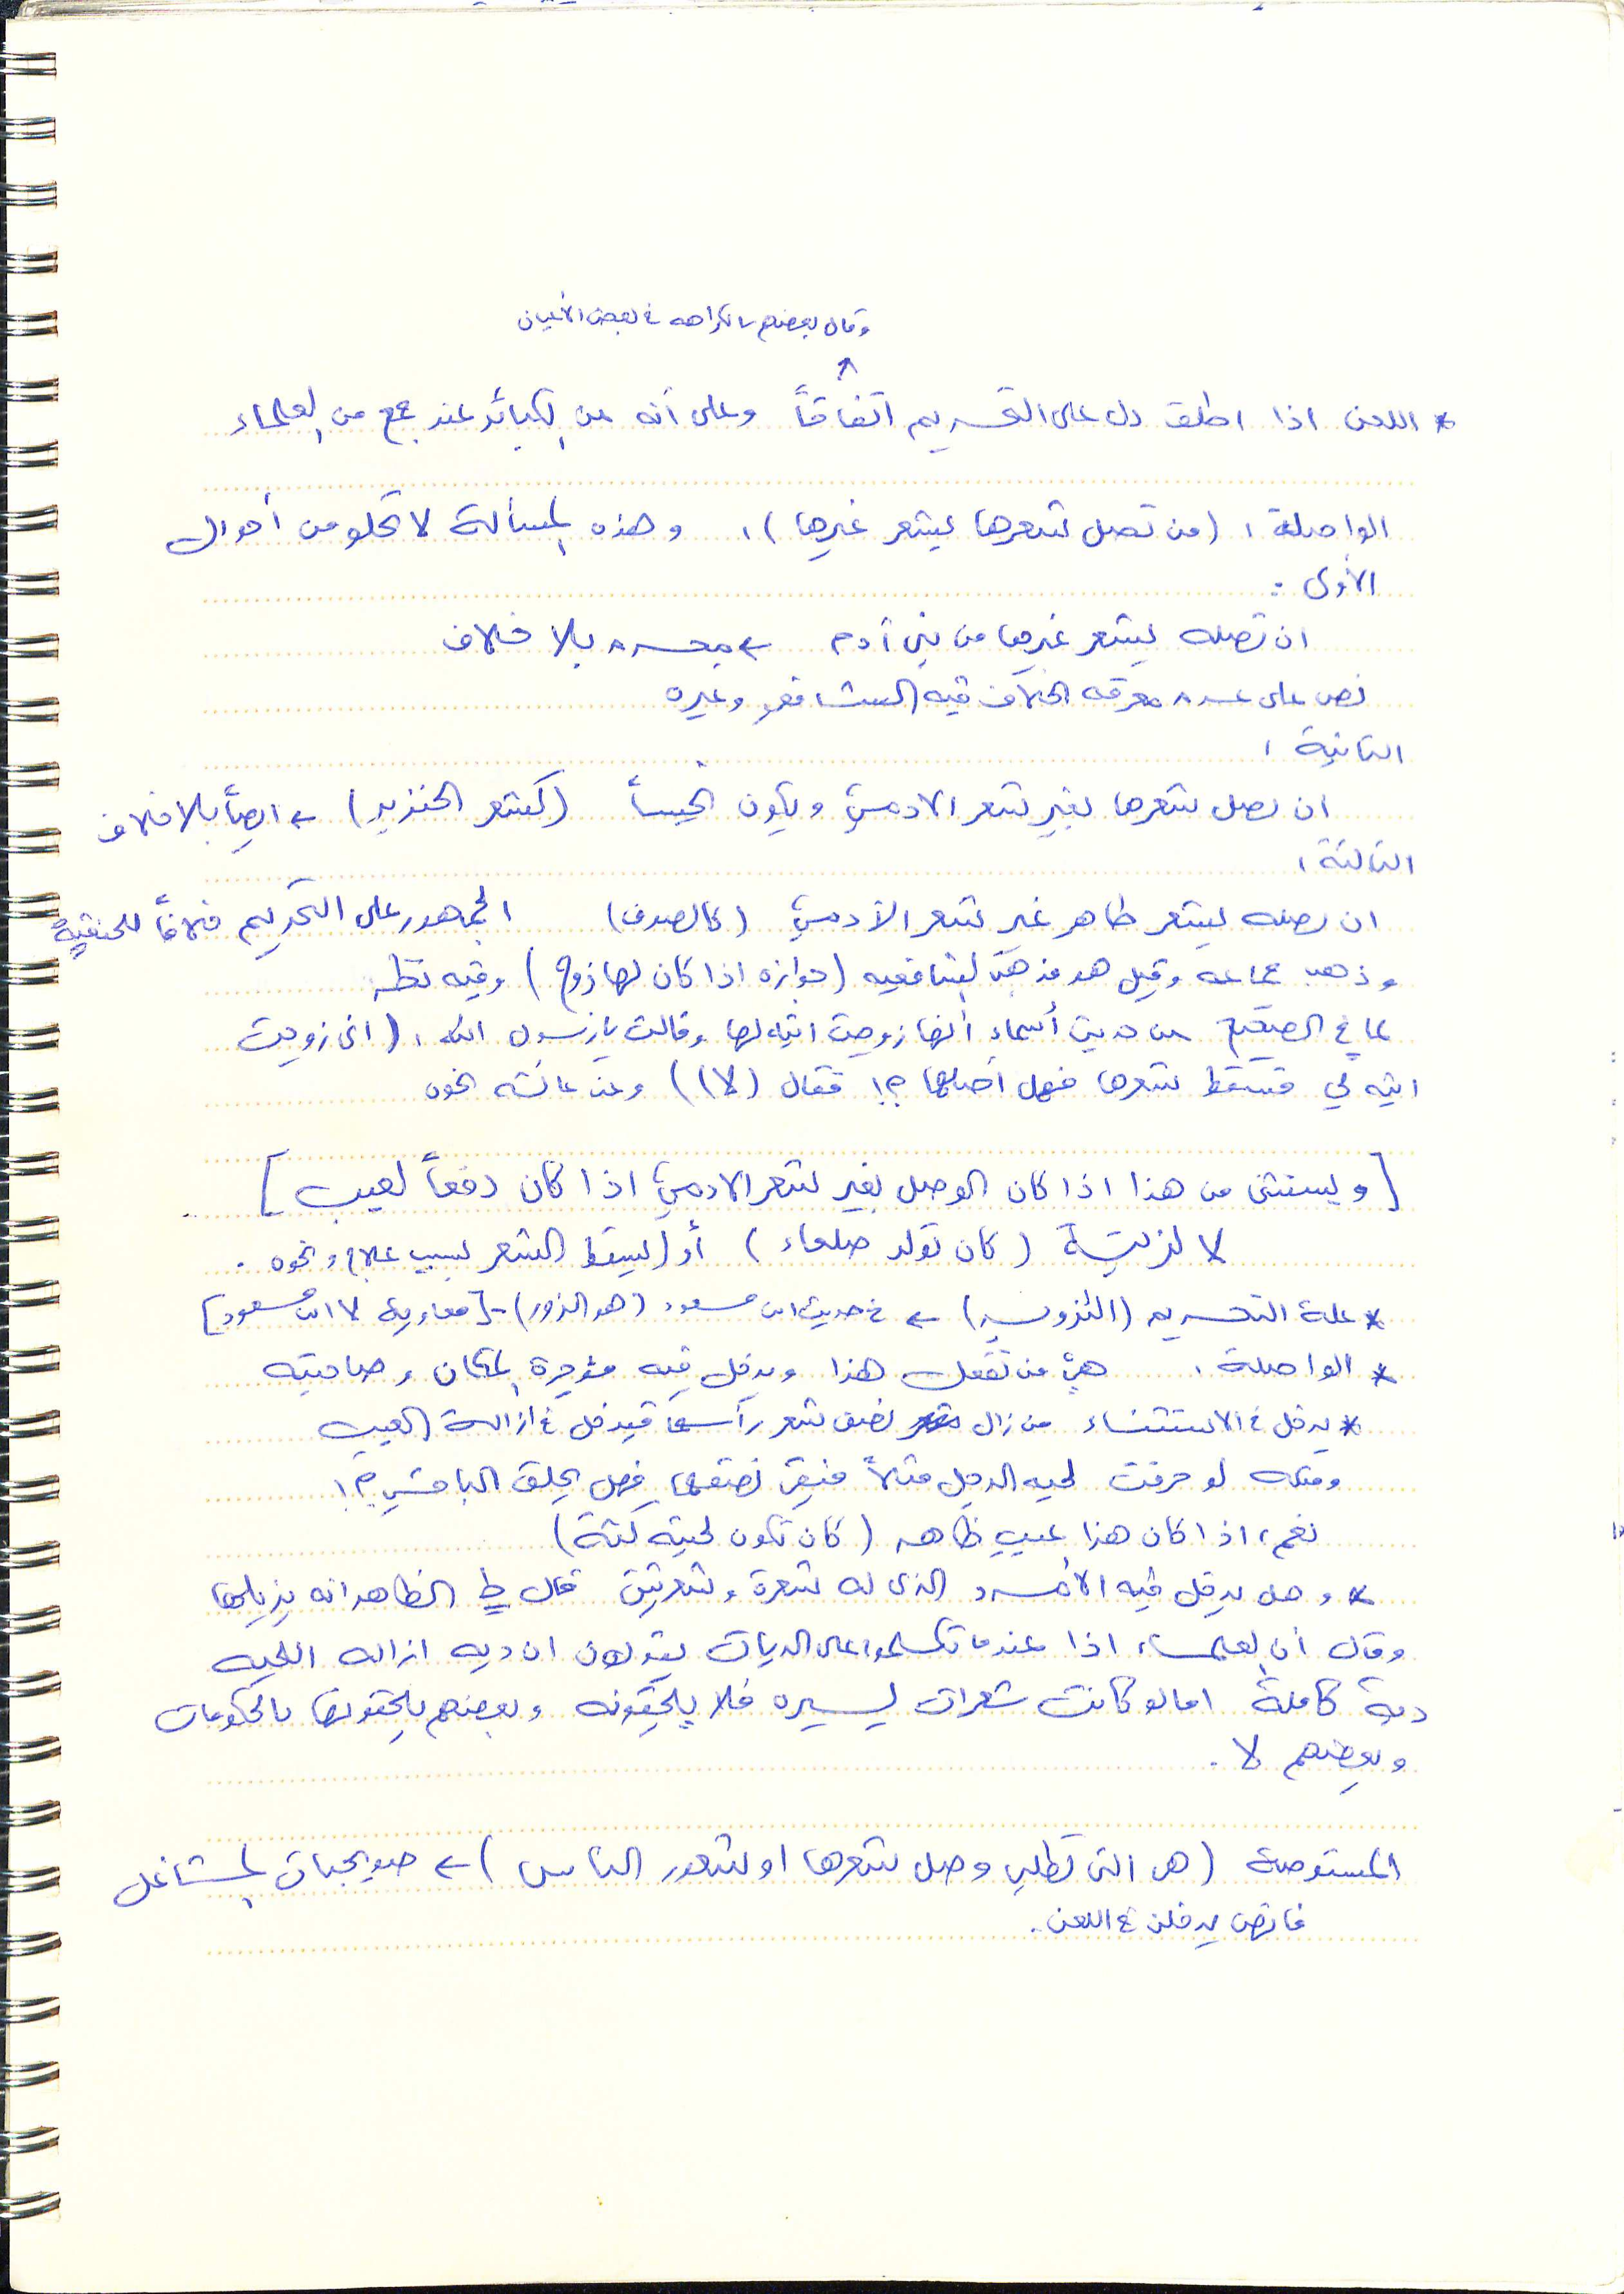 وقال بعضهم بالكراهه في بعض الأحيان
* اللعن اذا اطلق دل على التحريم اتفاقاً وعلى أنه من الكبائر عند جمع من العلماء
الواصلة : (من تصل شعرها بشعر غيرها) ، وهذه المسألة لا تخلو من أحوال
الأولى :
ان تصله بشعر غيرها من بني آدم ← محرم بلا خلاف
نص على عدم معرفه الخلاف فيه الشافعي وغيره
الثانية :
ان تصل شعرها بغير شعر الادمي ويكون نجساً (كشعر الخنزير) ← ايضاً بلا خلاف
الثالثة :
ان تصله بشعر طاهر غير شعر الآدمي (كالصوف) الجمهور على التحريم خلافاً للحنفية
وذهب جماعه وقيل هو مذهب الشافعيه (جوازه اذا كان لها زوج) وفيه نظر
لما في الصحيح من حديث أسماء أنها زوجت ابنه لها وقالت يا رسول الله : (اني زوجت
ابنه لي فتسقط شعرها فهل أصلها ؟! فقال (لا)) وعن عائشه نحوه
[ ويستثنى من هذا اذا كان الوصل بغير شعر الادمي اذا كان دفعاً لعيب ]
لا لزينة (كان تولد صلعاء) أو (يسقط الشعر بسبب علاج ونحوه .
* علة التحريم (التزوير) ← في حديث ابن مسعود (هو الزور) - [معاوية لا ابن مسعود]
* الواصلة : هي من تفعل هذا ويدخل فيه مؤجرة المكان وصاحبته
* يدخل في الاستثناء من زال نصف شعر رأسها فيدخل في ازالة العيب
ومثله لو حرقت لحيه الرجل مثلاً فبقي نصفها فهل يحلق الباقي ؟!
نعم ، اذا كان هذا عيب ظاهر (كان تكون لحيته كثة)
* وهل يدخل فيه الأمرد الذي له شعرة وشعرتين قال ط الظاهر انه يزيلها
وقال أن العلماء اذا عندما تكلموا على الديات يقولون ان ديه ازاله اللحيه
دية كاملة اما لو كانت شعرات يسيره فلا يلحقونه وبعضهم يلحقونها بالحكومات
وبعضهم لا .
المستوصلة (هي التي تطلب وصل شعرها او شعور الناس) ← صويحبات المشاغل
فانهن يدخلن في اللعن .